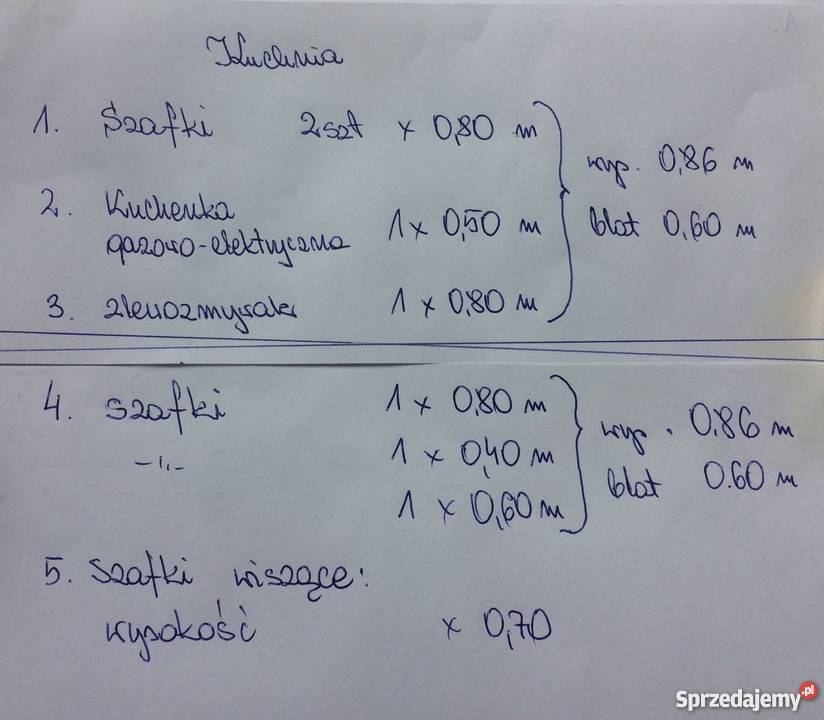 Kuchnia
1. Szafki 2szt x 0,80 m
wys. 0,86 m
2. Kuchenka
gazowo-elektryczna 1 x 0,50 m
blat 0,60 m
3. zlewozmywak 1 x 0,80 m
4. szafki 1 x 0,80 m
wys. 0,86 m
-"- 1 x 0,40 m
blat 0.60 m
1 x 0,60 m
5. Szafki wiszące:
wysokość x 0,70
Sprzedajemy.pl